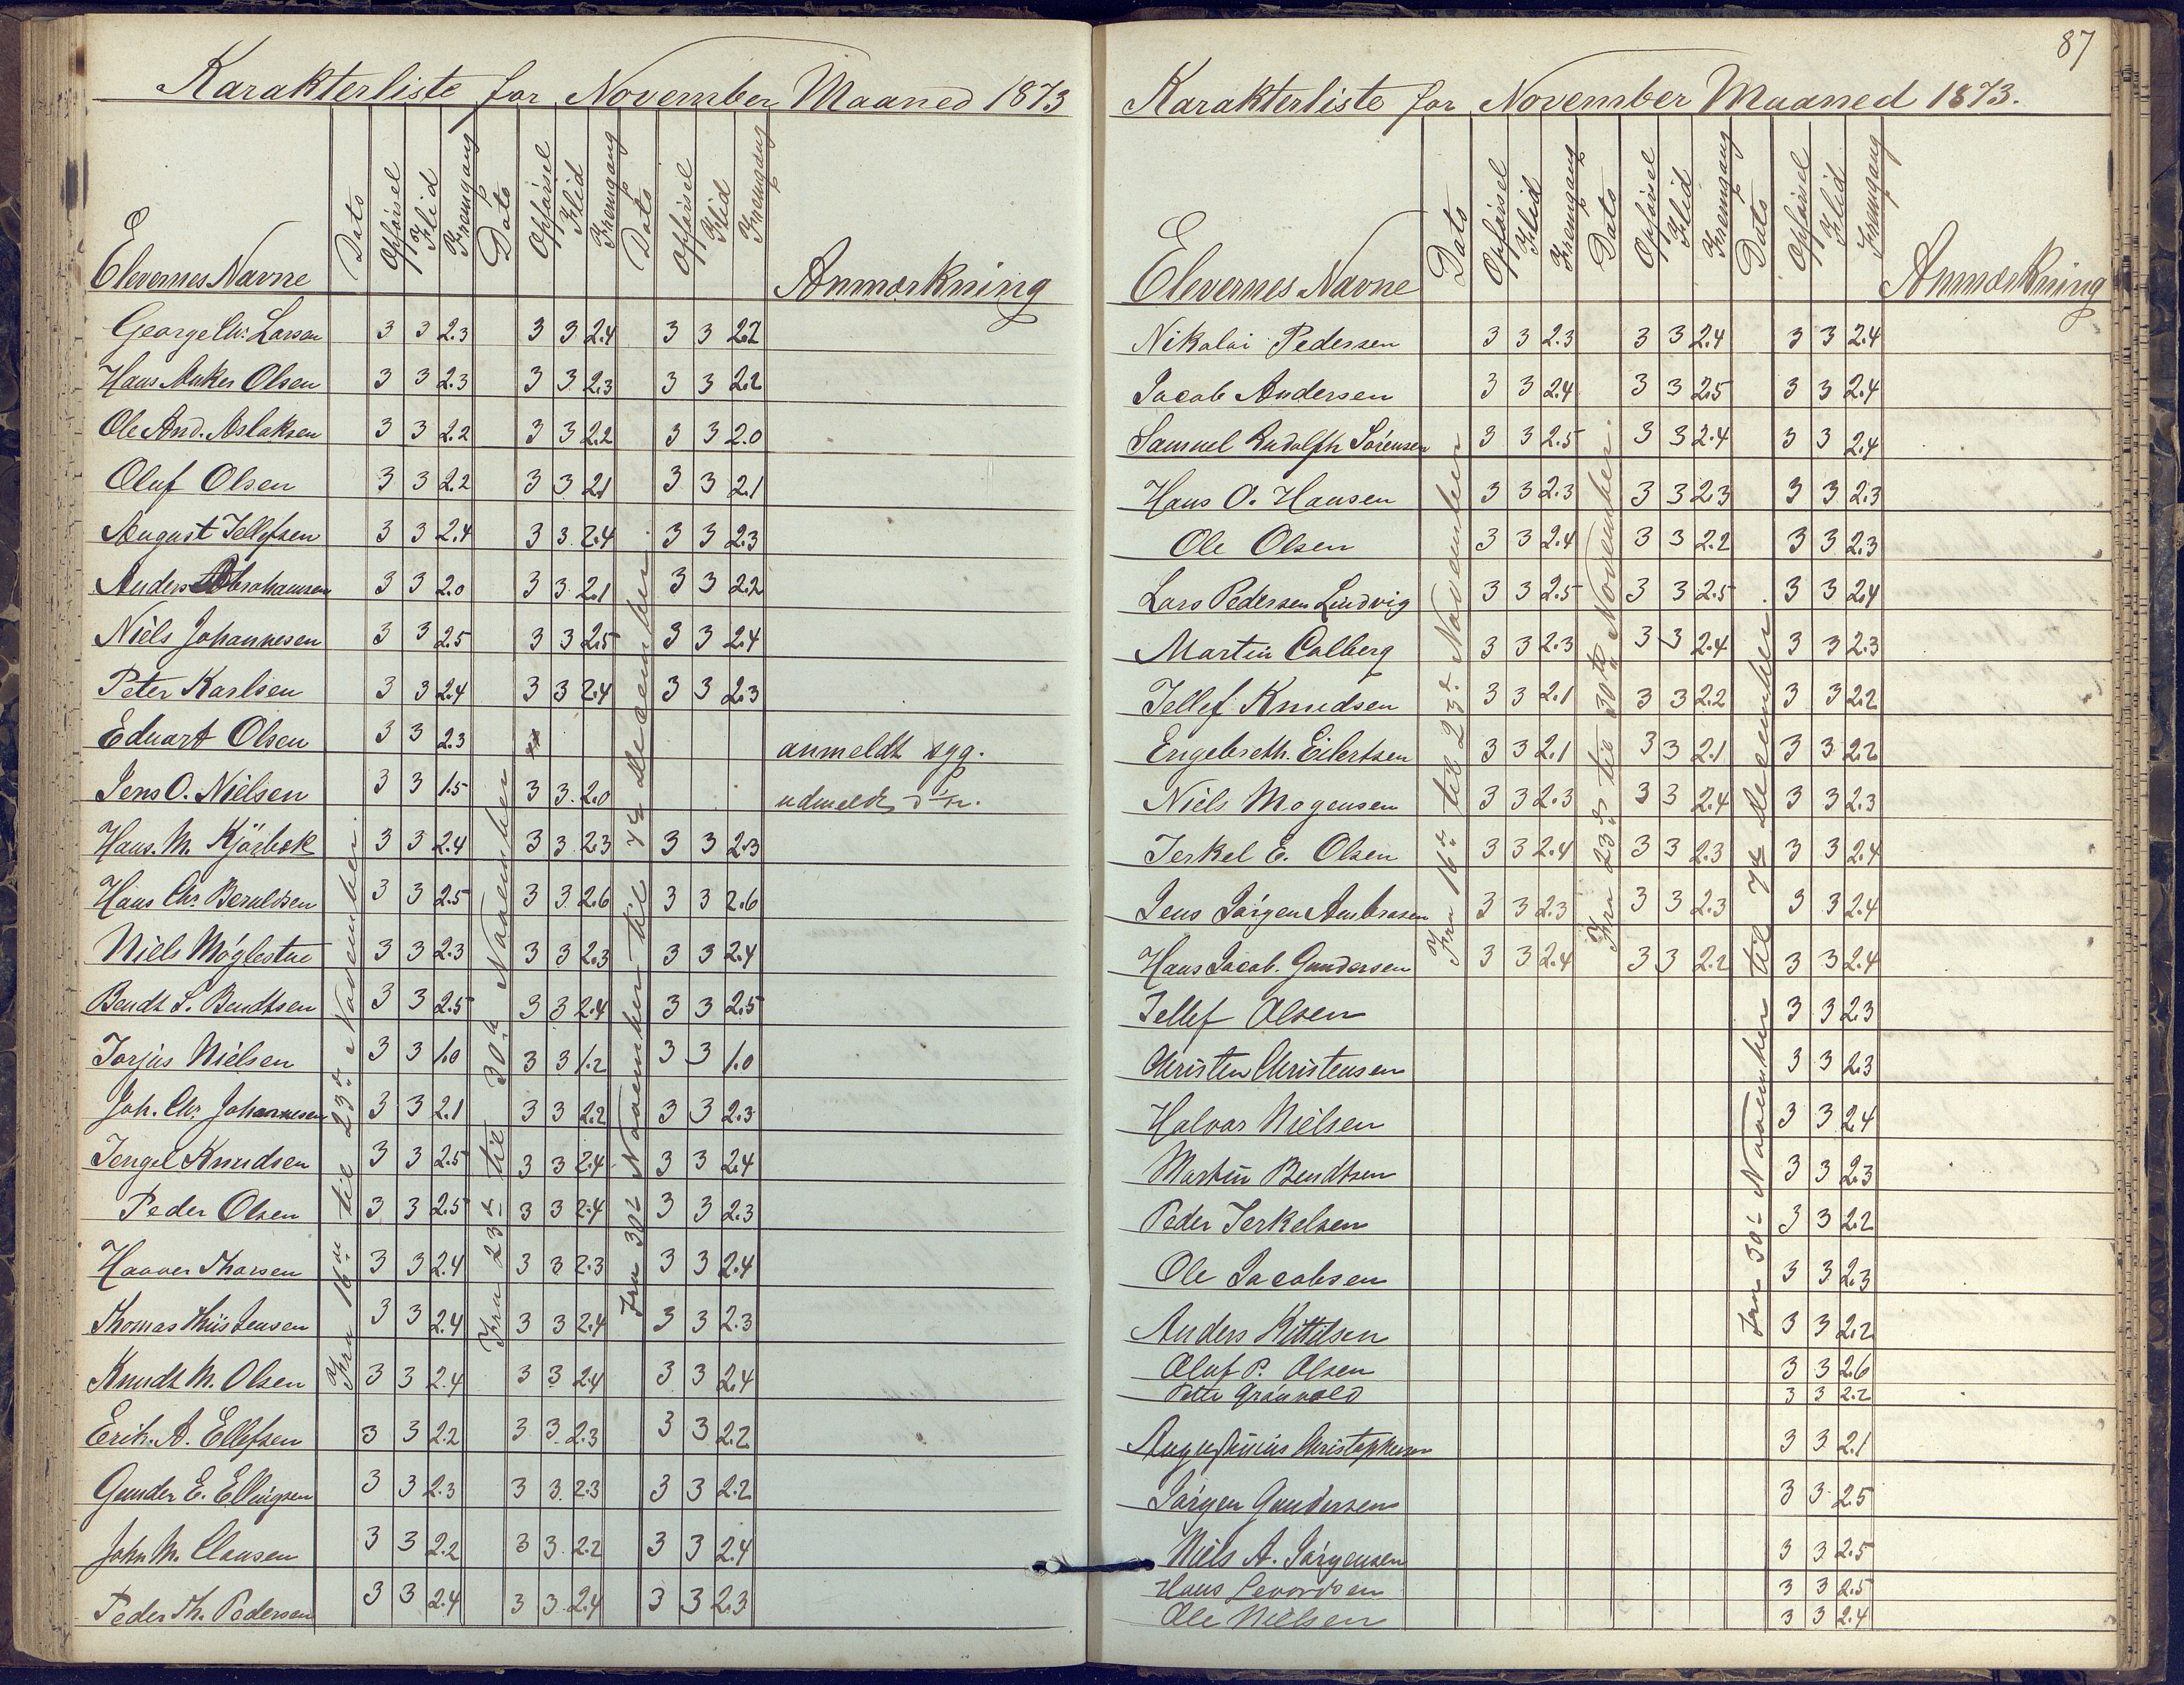 Karakterliste for November Maaned 1873
Elevernes Navne Dato Opførsel Flid Fremgang Dato Opførsel Flid Fremgang Dato Opførsel Flid Fremgang Anmærkning
Fra 16de til 23de November.
Fra 23de til 30te November
Fra 30te November til 7de December.
George Chr. Larsen 3 3 2.3 3 3 2.4 3 3 2.2
Hans Anker Olsen 3 3 2.3 3 3 2.3 3 3 2.2
Ole And. Aslaksen 3 3 2.2 3 3 2.2 3 3 2.0
Oluf Olsen 3 3 2.2 3 3 2.1 3 3 2.1
August Tellefsen 3 3 2.4 3 3 2.4 3 3 2.3
Anders Abrahamsen 3 3 2.0 3 3 2.1 3 3 2.2
Niels Johannesen 3 3 2.5 3 3 2.5 3 3 2.4
Peter Karlsen 3 3 2.4 3 3 2.4 3 3 2.3
Eduart Olsen 3 3 2.3 anmeldt syg.
Jens O. Nielsen 3 3 1.5 3 3 2.0 udmeldt
Hans. M. Kjørbek 3 3 2.4 3 3 2.3 3 3 2.3
Hans Chr. Beruldsen 3 3 2.5 3 3 2.6 3 3 2.6
Niels Møglestue 3 3 2.3 3 3 2.3 3 3 2.4
Bendt S. Bendtsen 3 3 2.5 3 3 2.4 3 3 2.5
Torjus Nielsen 3 3 1.0 3 3 1.2 3 3 1.0
Joh. Chr. Johannesen 3 3 2.1 3 3 2.2 3 3 2.3
Tengel Knudsen 3 3 2.5 3 3 2.4 3 3 2.4
Peder Olsen 3 3 2.5 3 3 2.4 3 3 2.3
Haaver Thorsen 3 3 2.4 3 3 2.3 3 3 2.4
Thomas Thiis Jensen 3 3 2.4 3 3 2.4 3 3 2.3
Knudt M. Olsen 3 3 2.4 3 3 2.4 3 3 2.4
Erik. A. Ellefsen 3 3 2.2 3 3 2.3 3 3 2.2
Gunder E. Ellingsen 3 3 2.3 3 3 2.3 3 3 2.2
John M. Clausen 3 3 2.2 3 3 2.2 3 3 2.4
Peder Th. Pedersen 3 3 2.4 3 3 2.4 3 3 2.3
87
Karakterliste for November Maaned 1873.
Elevernes Navne Dato Opførsel Flid Fremgang Dato Opførsel Flid Fremgang Dato Opførsel Flid Fremgang Anmærkning
Fra 16de til 23de November
Fra 23de til 30te November.
Fra 30te November til 7de December.
Nikolai Pedersen 3 3 2.3 3 3 2.4 3 3 2.4
Jacob Andersen 3 3 2.4 3 3 2.5 3 3 2.4
Samuel Rudolph Sørensen 3 3 2.5 3 3 2.4 3 3 2.4
Hans O. Hansen 3 3 2.3 3 3 2.3 3 3 2.3
Ole Olsen 3 3 2.4 3 3 2.2 3 3 2.3
Lars Pedersen Lindvig 3 3 2.5 3 3 2.5 3 3 2.4
Martin Calberg 3 3 2.3 3 3 2.4 3 3 2.3
Tellef Knudsen 3 3 2.1 3 3 2.2 3 3 2.2
Engebreth. Eilertsen 3 3 2.1 3 3 2.1 3 3 2.2
Niels Mogensen 3 3 2.3 3 3 2.4 3 3 2.3
Terkel E. Olsen 3 3 2.4 3 3 2.3 3 3 2.4
Jens Jørgen Ambrosen 3 3 2.3 3 3 2.3 3 3 2.4
Hans Jacob. Gundersen 3 3 2.4 3 3 2.2 3 3 2.4
Tellef Olsen 3 3 2.3
Christen Christensen 3 3 2.3
Halvor Nielsen 3 3 2.4
Martin Bendtsen 3 3 2.3
Peder Terkelsen 3 3 2.2
Ole Jacobsen 3 3 2.3
Anders Kittilsen 3 3 2.2
Oluf P. Olsen 3 3 2.6
Peter Grønvold 3 3 2.2
Augustinius Christophersen 3 3 2.1
Jørgen Gundersen 3 3 2.5
Niels A. Jørgensen 3 3 2.5
Hans Levordsen 3 3 2.5
Ole Nielsen 3 3 2.4